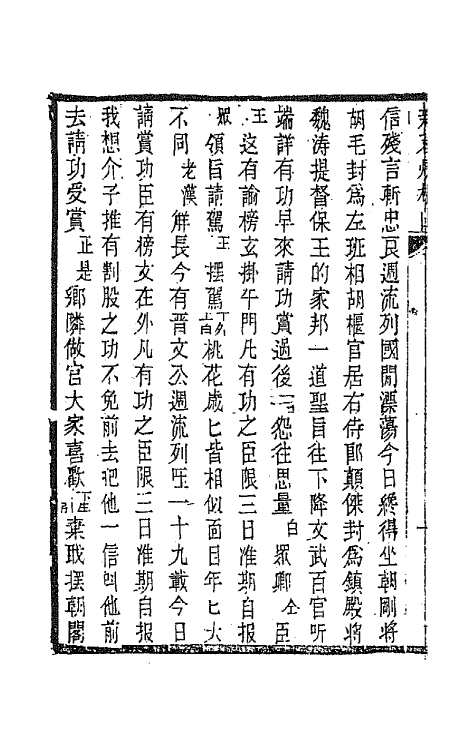 信殘言斬忠良週流列國閒漂蕩今日纔得坐朝剛將
胡毛封爲左班相胡偃官居右侍郎顛傑封爲鎮殿將
魏涛提督保王的家邦一道聖旨往下降文武百官听
端詳有功早來請功賞過後一怨往思量白眾卿仝臣
王这有諭榜玄掛午門凡有功之臣限三日准期自报
眾領旨請駕王摆駕下仝上首桃花歲匕皆相似面目年匕大
不同老漢觧長今有晋文公週流列国一十九載今日
請賞功臣有榜文在外凡有功之臣限三日准期自报
我想介子推有割股之功不免前去把他一信叫他前
去請功受賞正是鄉隣做官大家喜歡下生引棄职摆朝閣